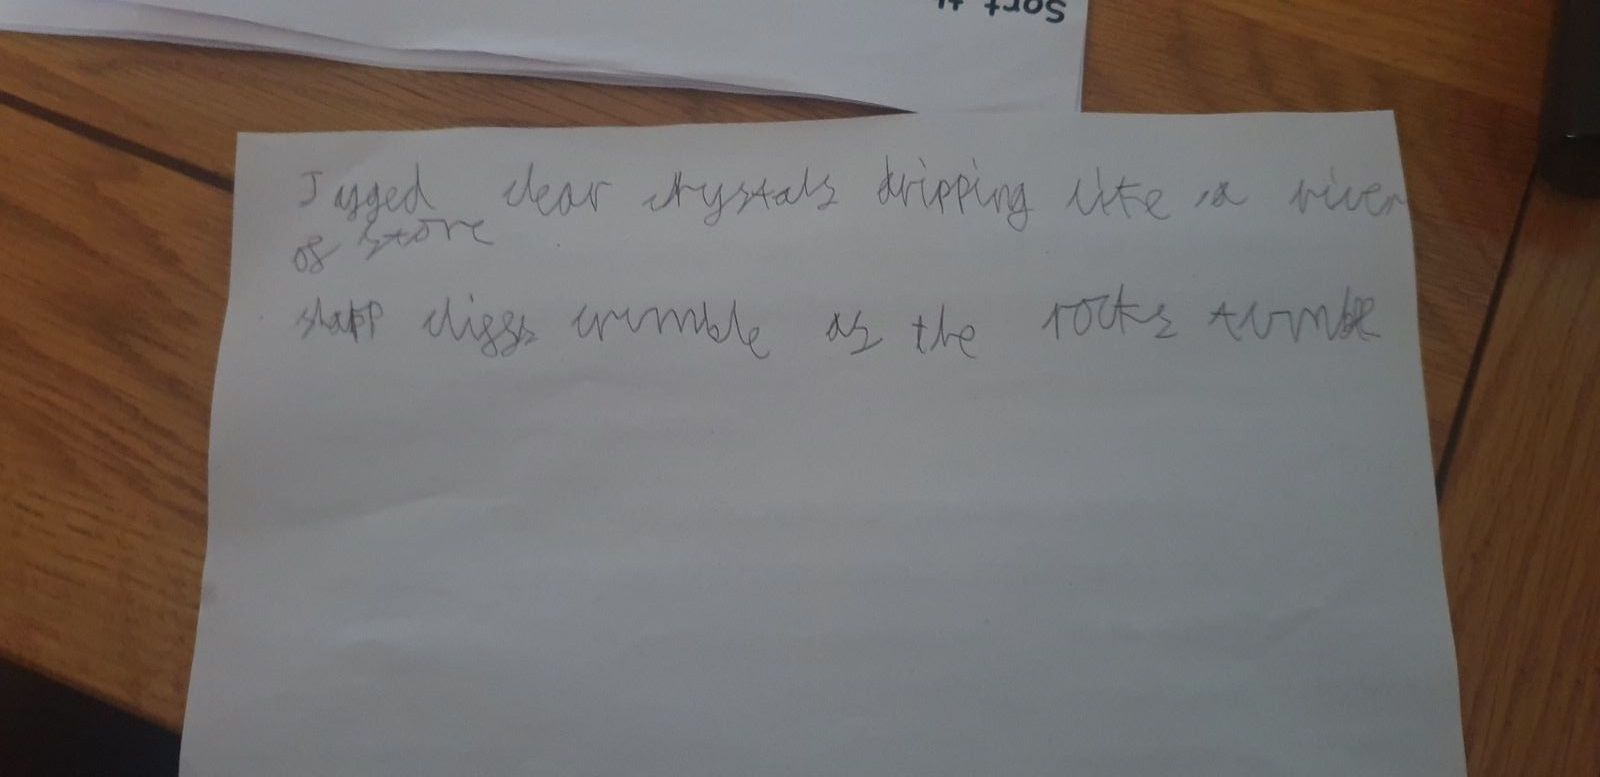 Sort th
Jagged clear crystals dripping like a river
of stone
sharp cliffs crumble as the rocks tumble